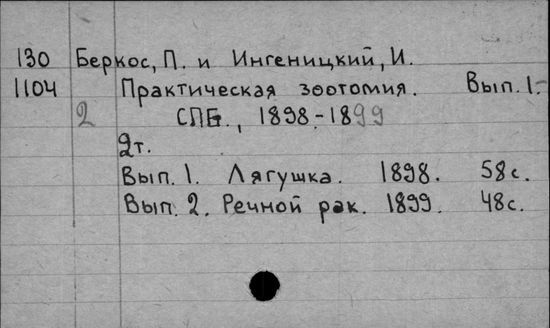 130 Беркос, П. и Ингеницкий, И.
1104 Практическая зоотомия. Вып. 1-
2 СПБ., 1898-1899
2т.
Вып. 1. Лягушка. 1898. 58с.
Вып. 2. Речной рак. 1899. 48с.